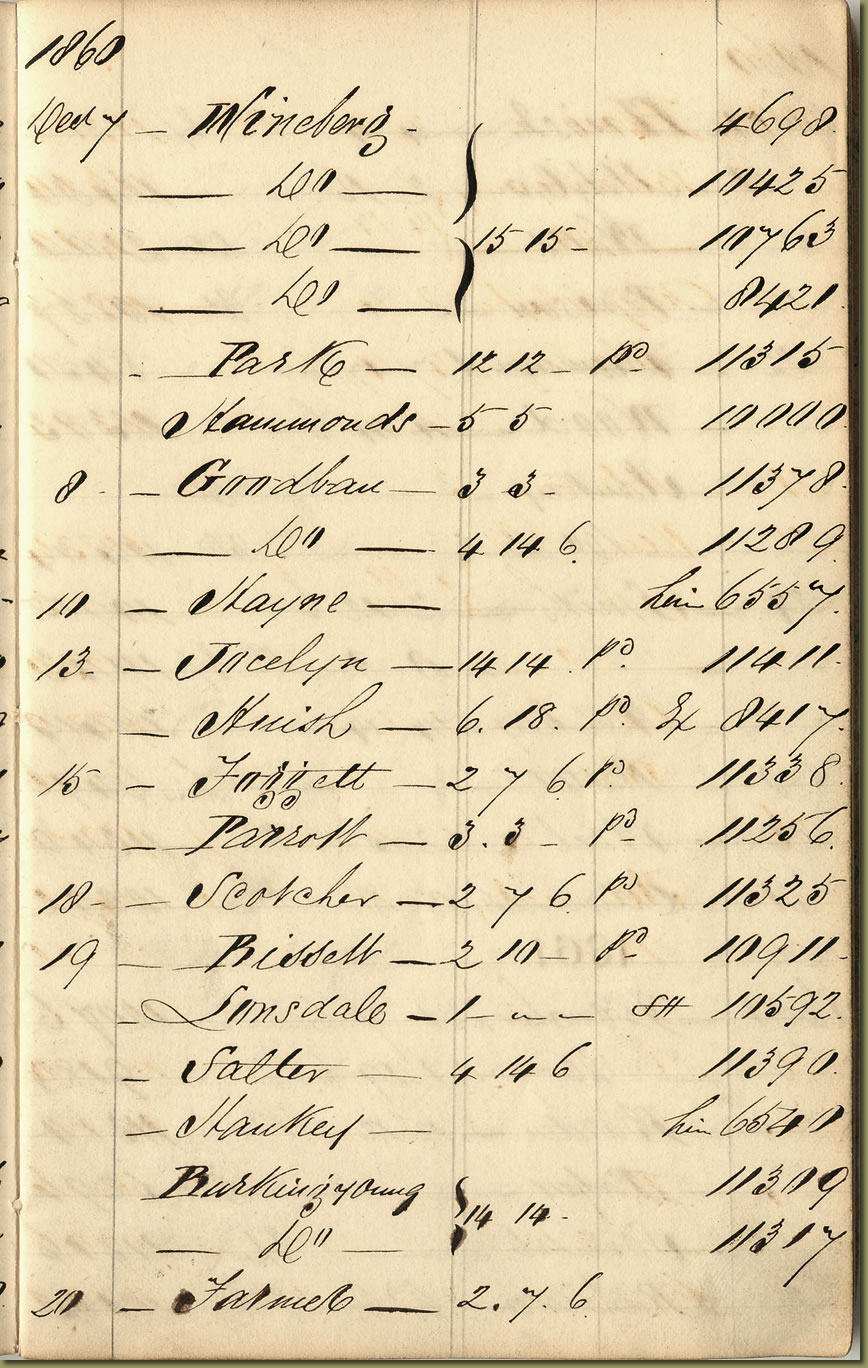 1860
Decr 7 — Wineberg - 4698.
— Do — 10425
— Do — 15 15 - 10763
— Do — 8421.
- — Park — 12 12 - pd 11315
Hammonds - 5 5 10000.
8 - — Goodban — 3 3 - 11378.
— Do — 4 14 6. 11289.
10 — Hayne — 6557.
13 - — Jocelyn — 14 14. pd 11411.
— Huish — 6. 18. pd Ex 8417.
15 — Foggett — 2 7 6 pd 11338.
— Parrott — 3. 3 - pd 11256.
18 - — Scotcher — 2 7 6 pd 11325
19 — Bissett — 2 10 - pd 10911.
— Lonsdale — 1 - - - SH 10592.
— Salter — 4 14 6 11390.
— Hankey — 6540
Burkingyoung 14 14 - 11309
— Do — 11317
20 — Farmer — 2. 7. 6.